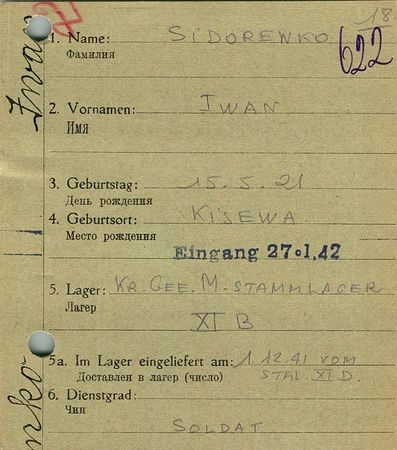 18
1. Name: SIDORENKO
Фамилия
622
2. Vornamen: IWAN
Имя
3. Geburtstag: 15. 5. 21
День рождения
4. Geburtsort: KISEWA
Место рождения
Eingang 27.1.42
5. Lager: KR. GEF. M-STAMMLAGER
Лагер
XI B
5a. Im Lager eingeliefert am: 1. 12. 41 VOM
Доставлен в лагер (число) STAL. XI D.
6. Dienstgrad:
Чин
SOLDAT
Iwan
nko